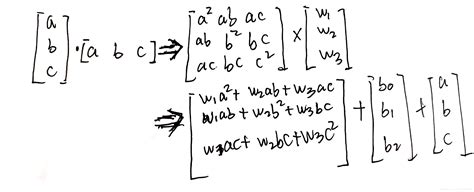 [a b c] · [a b c] ⇒ [a² ab ac
ab b² bc
ac bc c²] × [w₁
w₂
w₃]
⇒ [w₁a² + w₂ab + w₃ac
w₁ab + w₂b² + w₃bc
w₃ac + w₂bc + w₃c²] + [b₀
b₁
b₂] + [a
b
c]